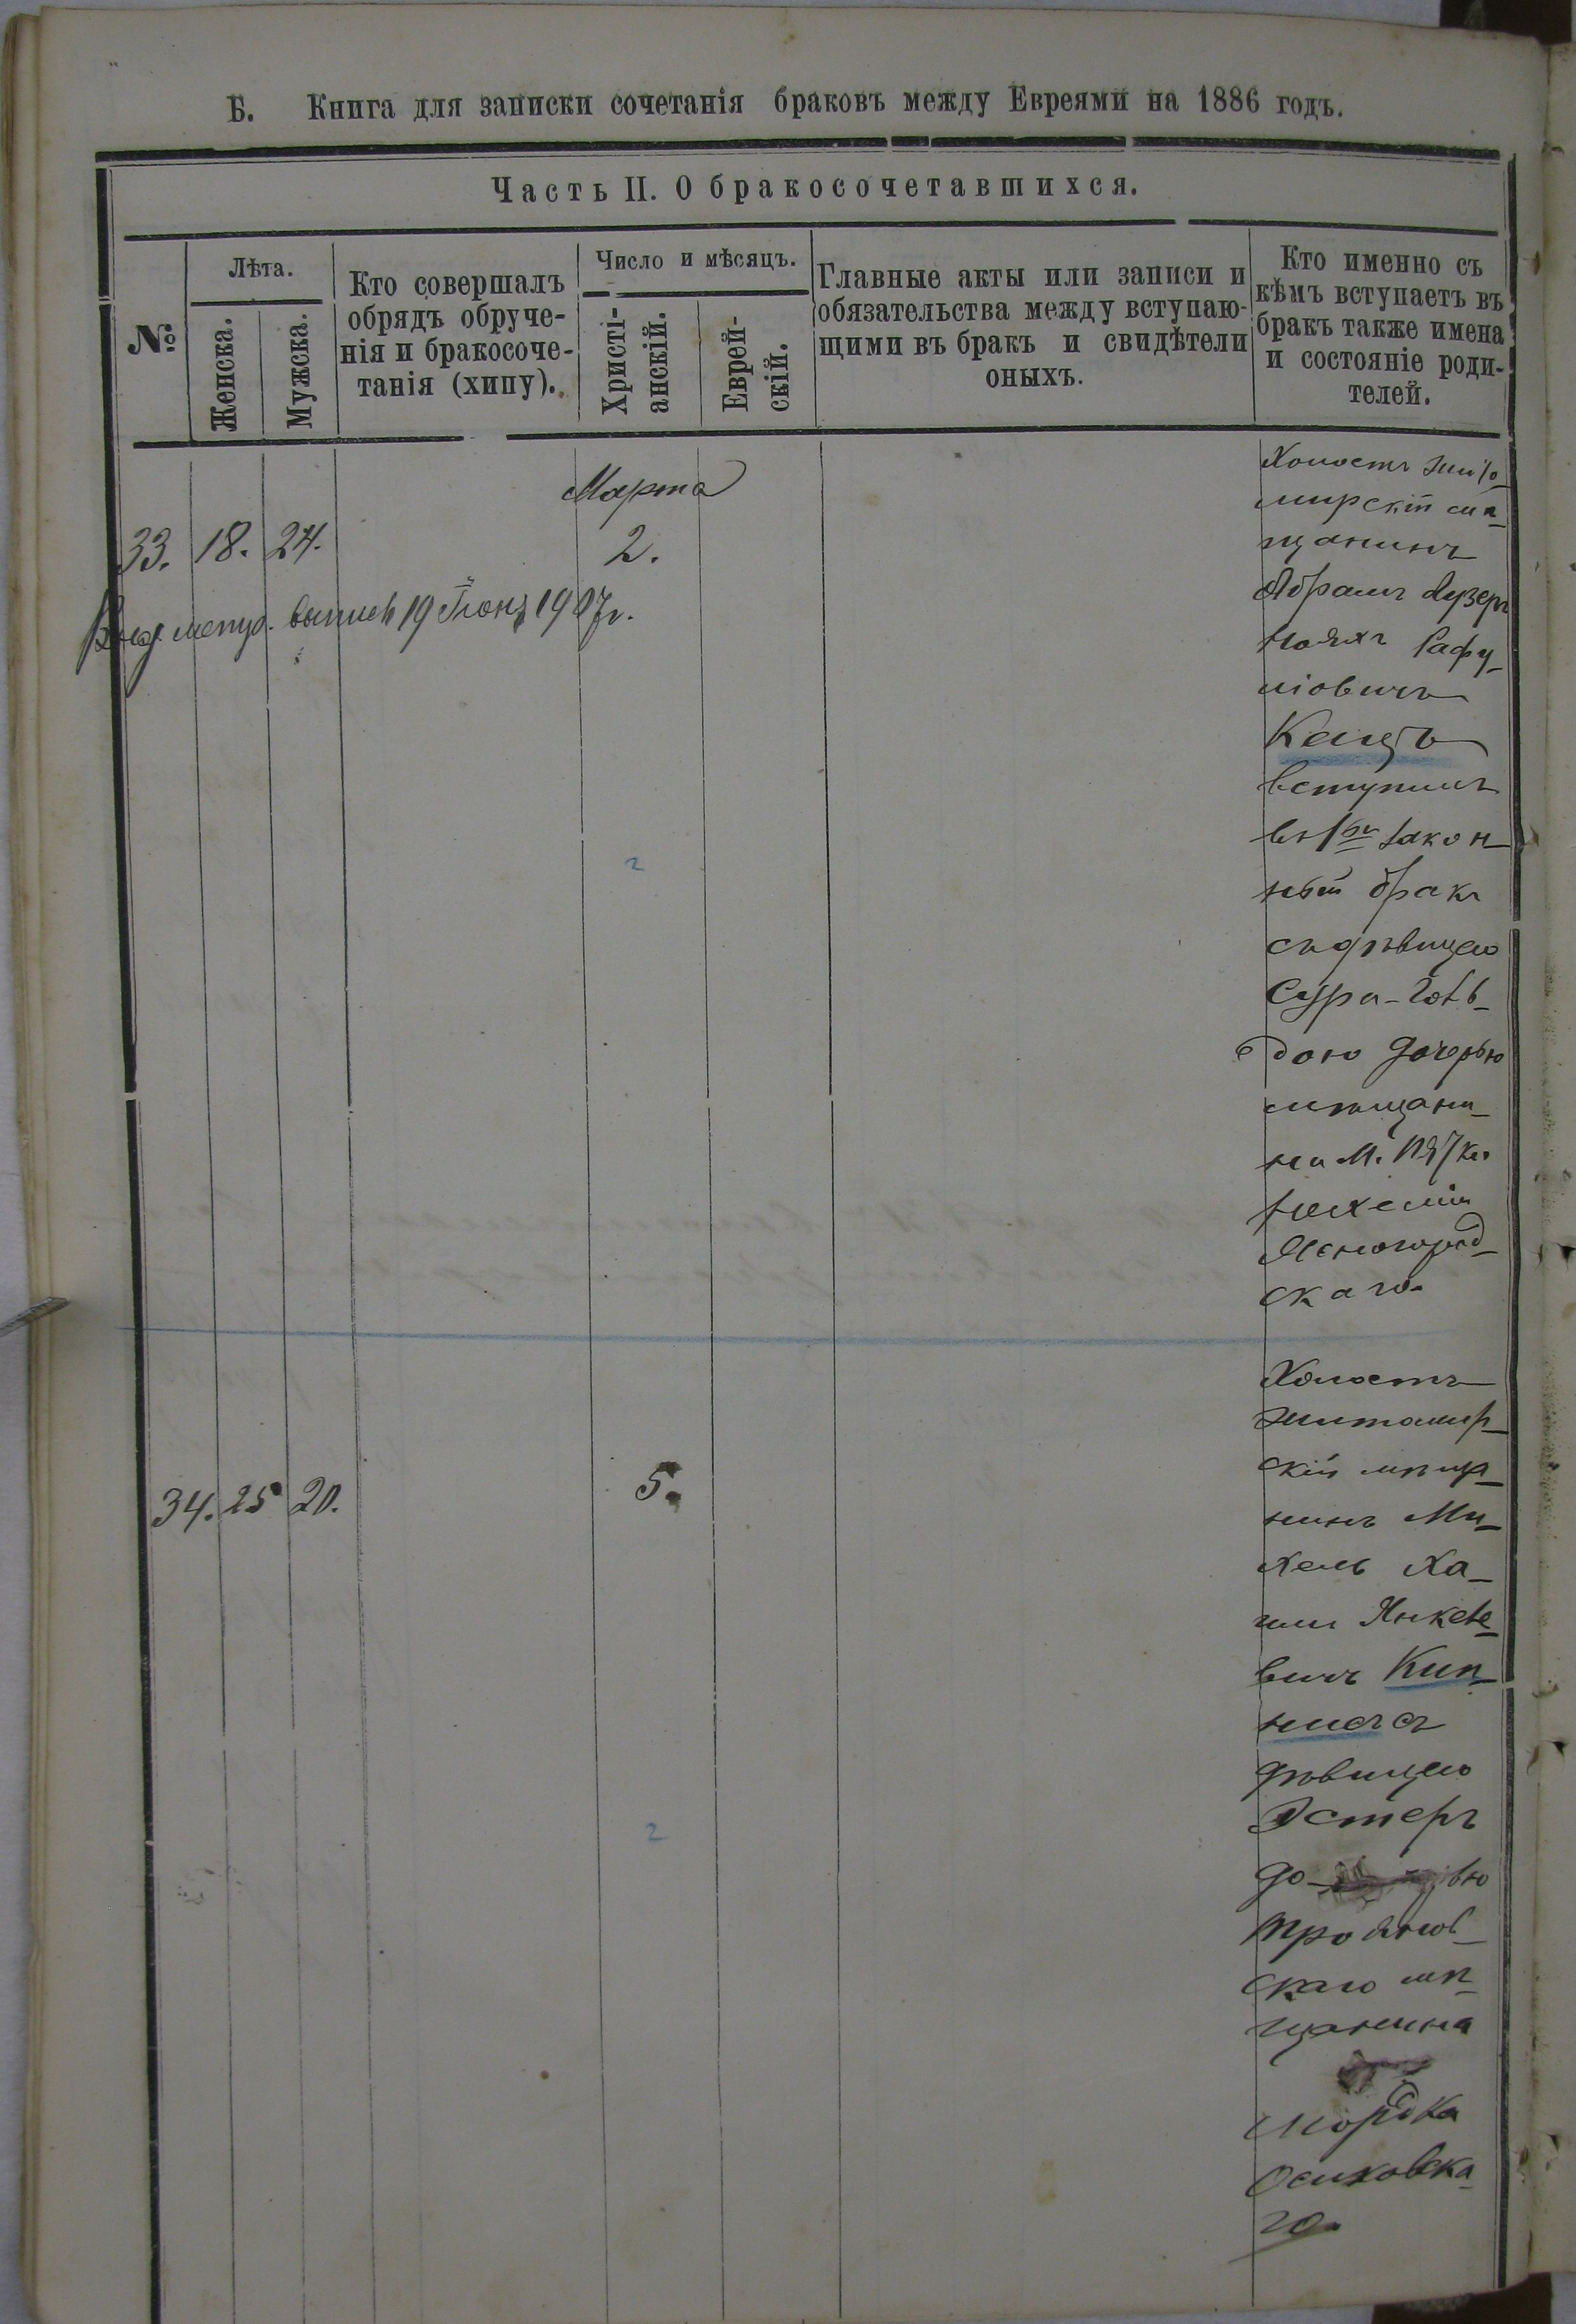 Б. Книга для записки сочетанія браковъ между Евреями на 1886 годъ.
Часть II. О бракосочетавшихся.
№
Лѣта.
Женска.
Мужска.
Кто совершалъ
обрядъ обруче-
нія и бракосоче-
танія (хипу).
Число и мѣсяцъ.
Христі-
анскій.
Еврей-
скій.
Главные акты или записи и
обязательства между вступаю-
щими въ бракъ и свидѣтели
оныхъ.
Кто именно съ
кѣмъ вступаетъ въ
бракъ также имена
и состояніе роди-
телей.
Марта
33. 18. 24. 2.
метр. выпись 19 Іюня 1907 г.
Холостъ Жито-
мирскій мѣ-
щанинъ
Абрамъ Лузеръ
Нояхъ Рафу-
ліовичъ
Кацъ
вступилъ
въ 1ый закон
ный бракъ
съ дѣвицею
Сура-Голь-
дою дочерью
мѣщани-
на М. Пятки
Нухема
Ясногород-
скаго.
2
Холостъ
Житомир-
скій мѣща-
нинъ Ми-
хель Ха-
имъ Янкеле-
вичъ Кип-
нисъ съ
дѣвицею
Эстеръ
34. 25 20. 5.
до ью
Трояновъ-
скаго мѣ-
щанина
Мордка
Осиховска-
го.
2